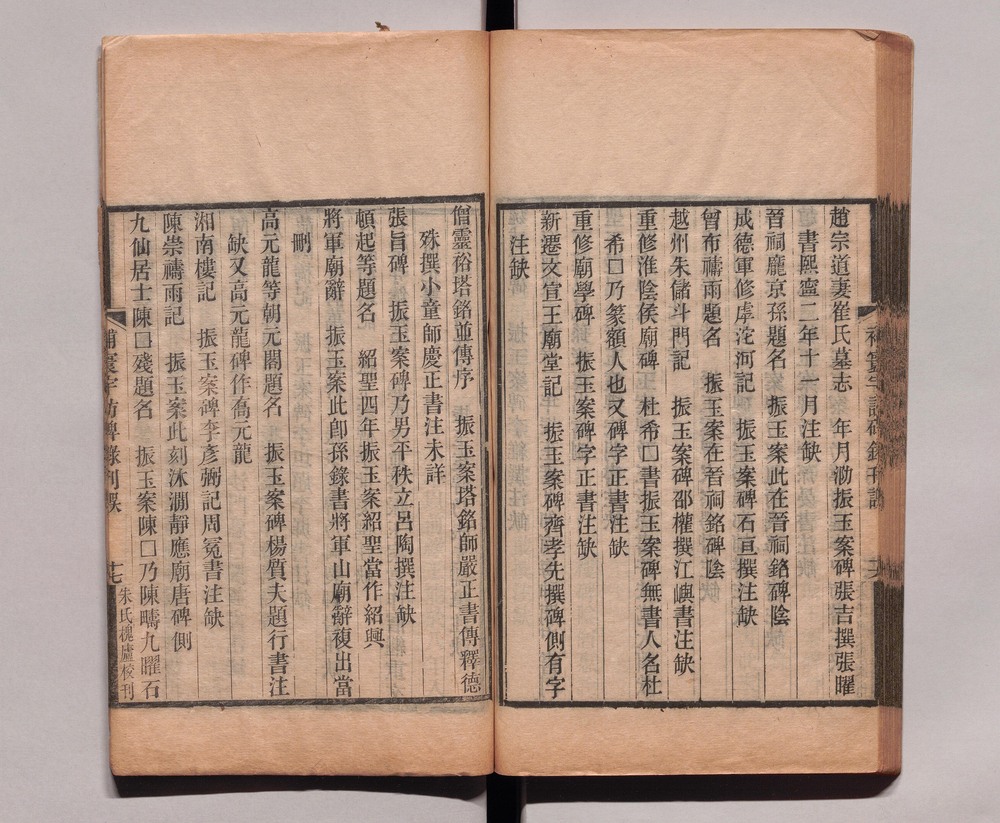 趙宗道妻崔氏墓志　年月泐振玉案碑張吉撰張曜
書熙寧二年十一月注缺
晉祠龐京孫題名　振玉案此在晉祠銘碑陰
成德軍修虖沱河記　振玉案碑石亘撰注缺
曾布禱雨題名　振玉案在晉祠銘碑陰
越州朱儲斗門記　振玉案碑邵權撰江嶼書注缺
重修淮陰侯廟碑　杜希□書振玉案碑無書人名杜
希□乃篆額人也又碑字正書注缺
重修廟學碑　振玉案碑字正書注缺
新遷文宣王廟堂記　振玉案碑齊孝先撰碑側有字
注缺
僧靈裕塔銘並傳序　振玉案塔銘師嚴正書傳釋德
殊撰小童師慶正書注未詳
張旨碑　振玉案碑乃男平秩立呂陶撰注缺
頓起等題名　紹聖四年振玉案紹聖當作紹興
將軍廟辭　振玉案此卽孫錄書將軍山廟辭複出當
刪
高元龍等朝元閣題名　振玉案碑楊質夫題行書注
缺又高元龍碑作喬元龍
湘南樓記　振玉案碑李彥弼記周冕書注缺
陳崇禱雨記　振玉案此刻沐澗靜應廟唐碑側
九仙居士陳□殘題名　振玉案陳□乃陳疇九曜石
補寰宇訪碑錄刊誤
十七
朱氏槐廬校刊